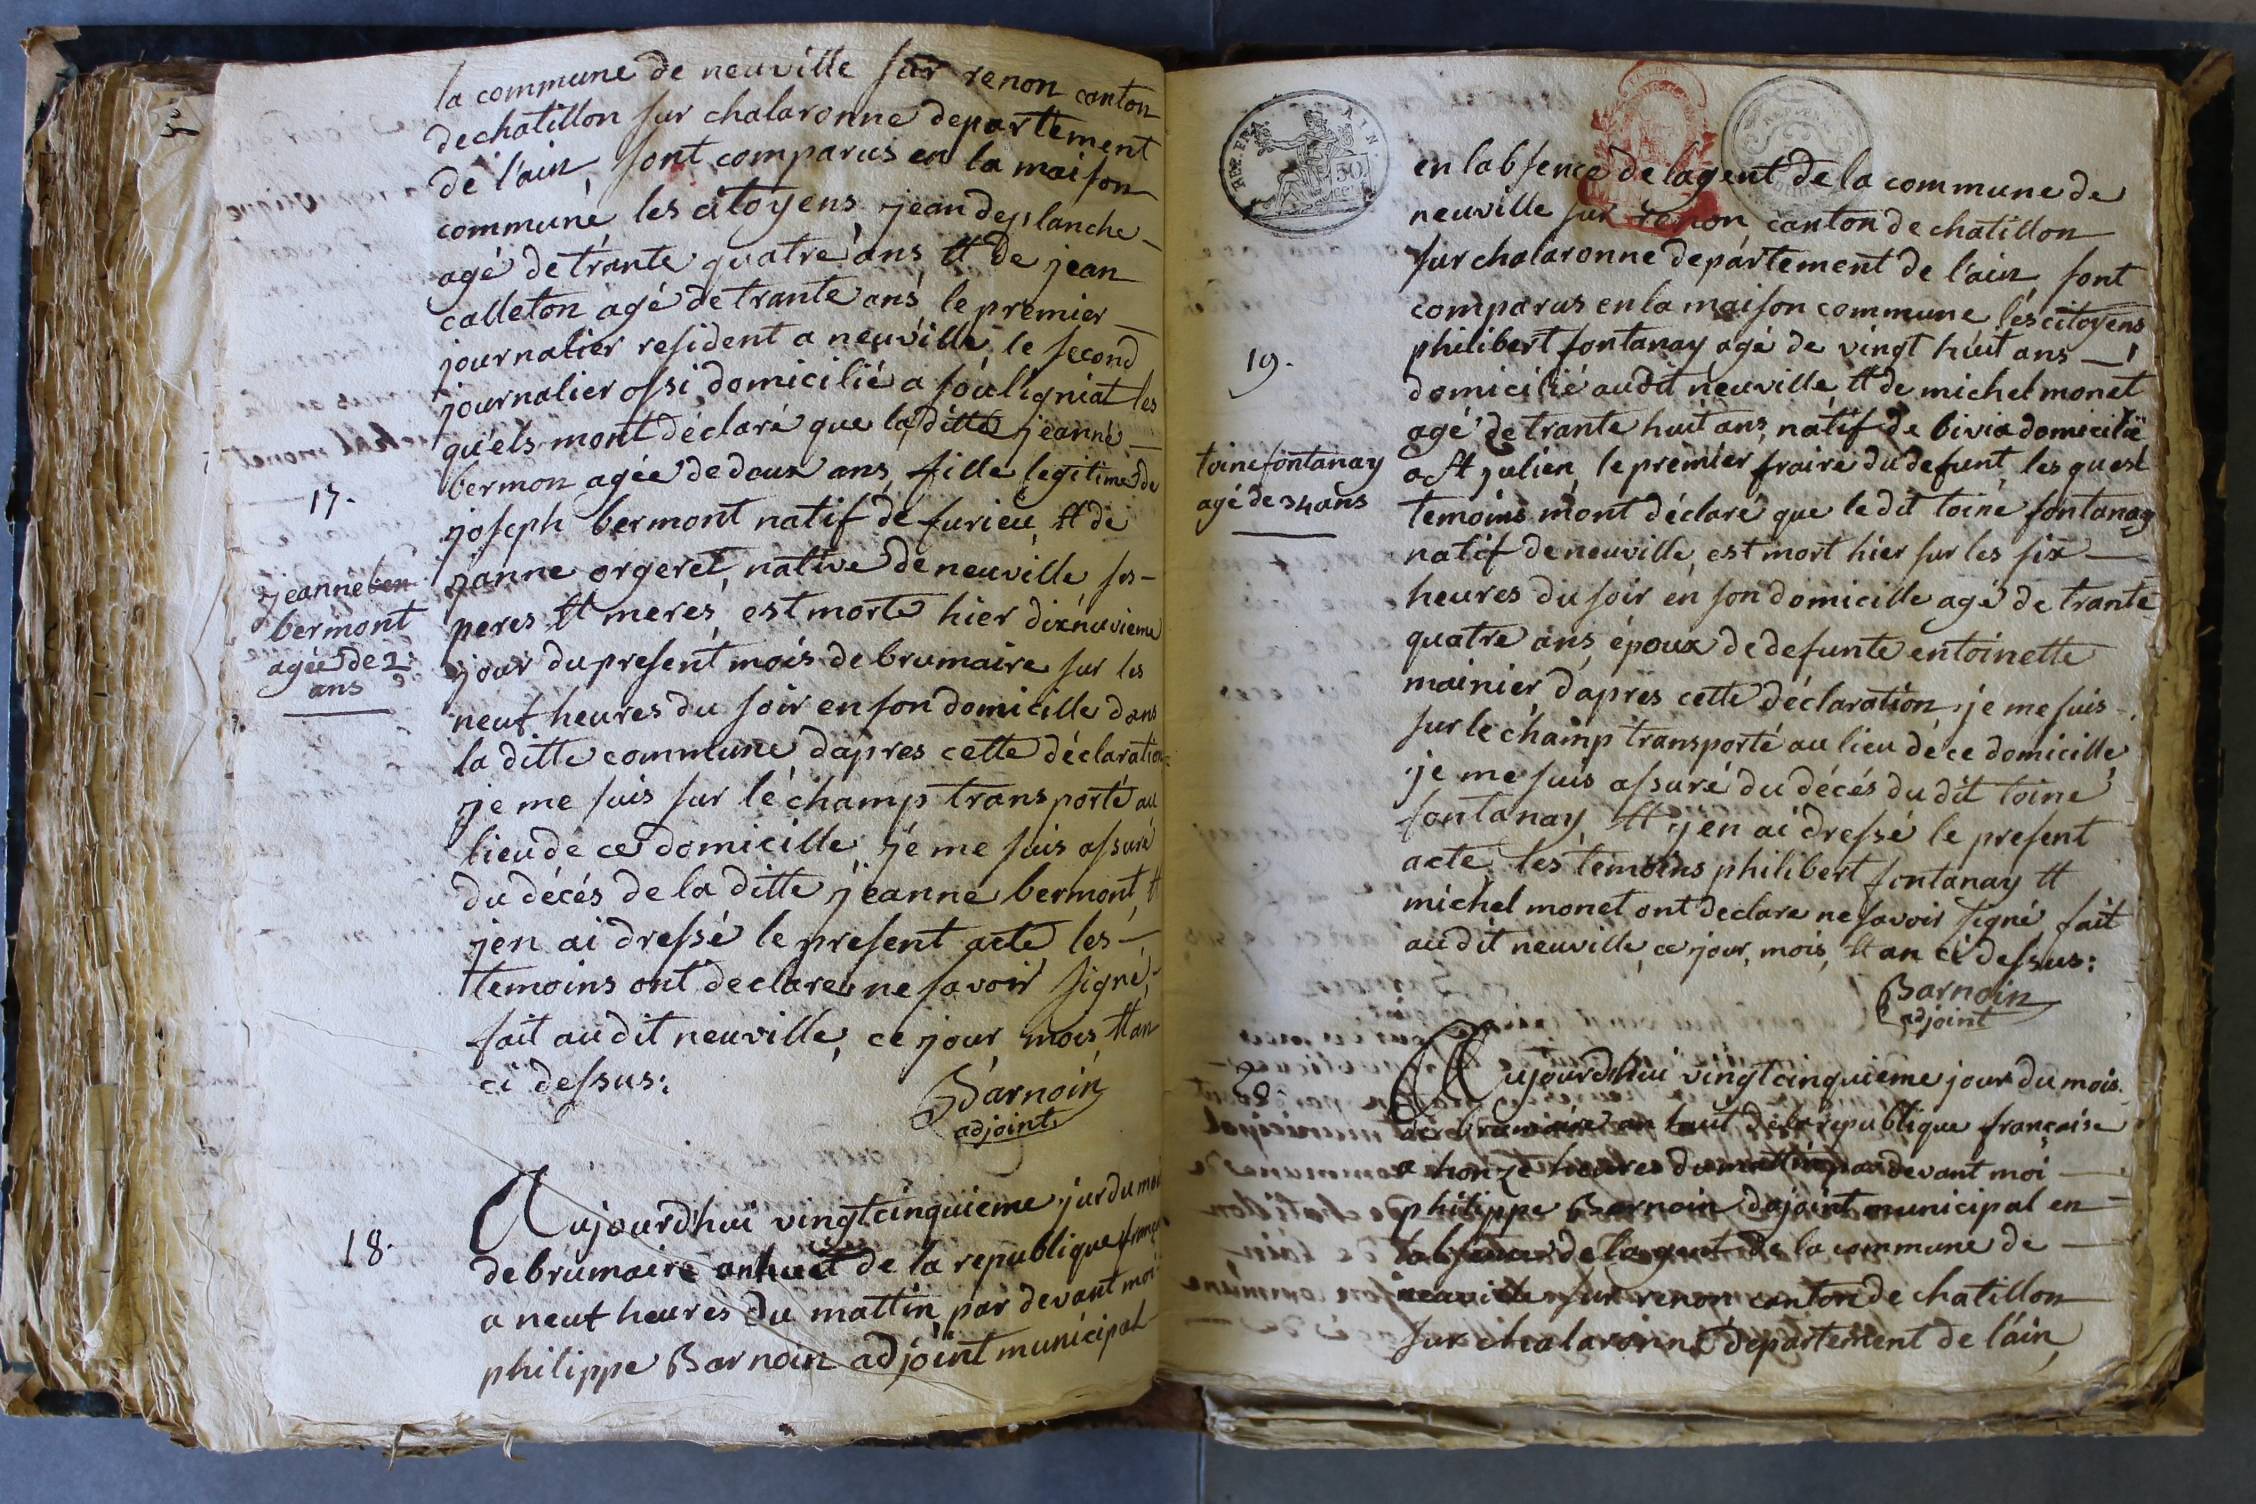 la commune de neuville sur renon canton
de chatillon sur chalaronne departement
de l'ain, sont comparus en la maison
commune les citoyens jean deplanche
agé de trante quatre ans et de jean
calleton agé de trante ans, le premier
journalier resident a neuville, le second
journalier ossi domicilié a souligniat les
quels mont déclaré que la ditte jeanne
bermon agée de doux ans, fille legitime de
joseph bermont natif de furieu et de
janne orgeret, native de neuville ses
peres et meres, est morte hier dixneuvieme
jour du present mois de brumaire sur les
neuf heures du soir en son domicille dans
la ditte commune dapres cette déclaration
je me suis sur le champ transporté au
lieu de ce domicille, je me suis assuré
du décés de la ditte jeanne bermont, et
jen ai dressé le present acte, les
temoins ont declare ne savoir signé,
fait au dit neuville, ce jour, mois, et an
ci dessus:
Barnoin
adjoint
17.
jeanne ber
bermont
agée de 2
ans
18.
Aujourd'hui vingt cinquieme jur du moi
de brumaire an huit de la republique franç
a neuf heures du mattin par devant moi
philippe Barnoin adjoint municipal
REP. FRA.
AIN.
50
en labsence de lagent de la commune de
neuville sur renon, canton de chatillon
sur chalaronne departement de l'ain, sont
comparus en la maison commune les citoyens
philibert fontanay agé de vingt huit ans
domicilié au dit neuville, et de michel monet
agé de trante huit ans, natif de bivia domicilié
a St julien, le premier fraire du defunt, les quest
temoins mont déclaré que le dit toine fontanay
natif de neuville, est mort hier sur les six
heures du soir en son domicille agé de trante
quatre ans, époux de defunte entoinette
mainier, dapres cette déclaration, je me suis
sur le champ transporté au lieu de ce domicille,
je me suis assuré du décés du dit toine
fontanay, et jen ai dressé le present
acte, les temoins philibert fontanay et
michel monet ont declare ne savoir signé, fait
au dit neuville, ce jour, mois, et an ci dessus:
Barnoin
adjoint
19.
toine fontanay
agé de 34 ans
20.
Aujourd'hui vingt cinquieme jour du mois
de brumaire an huit de la republique française
a honze heures du mattin par devant moi
philippe Barnoin dajoint municipal en
labsence de lagent de la commune de
neuville sur renon canton de chatillon
sur chalaronne departement de l'ain,